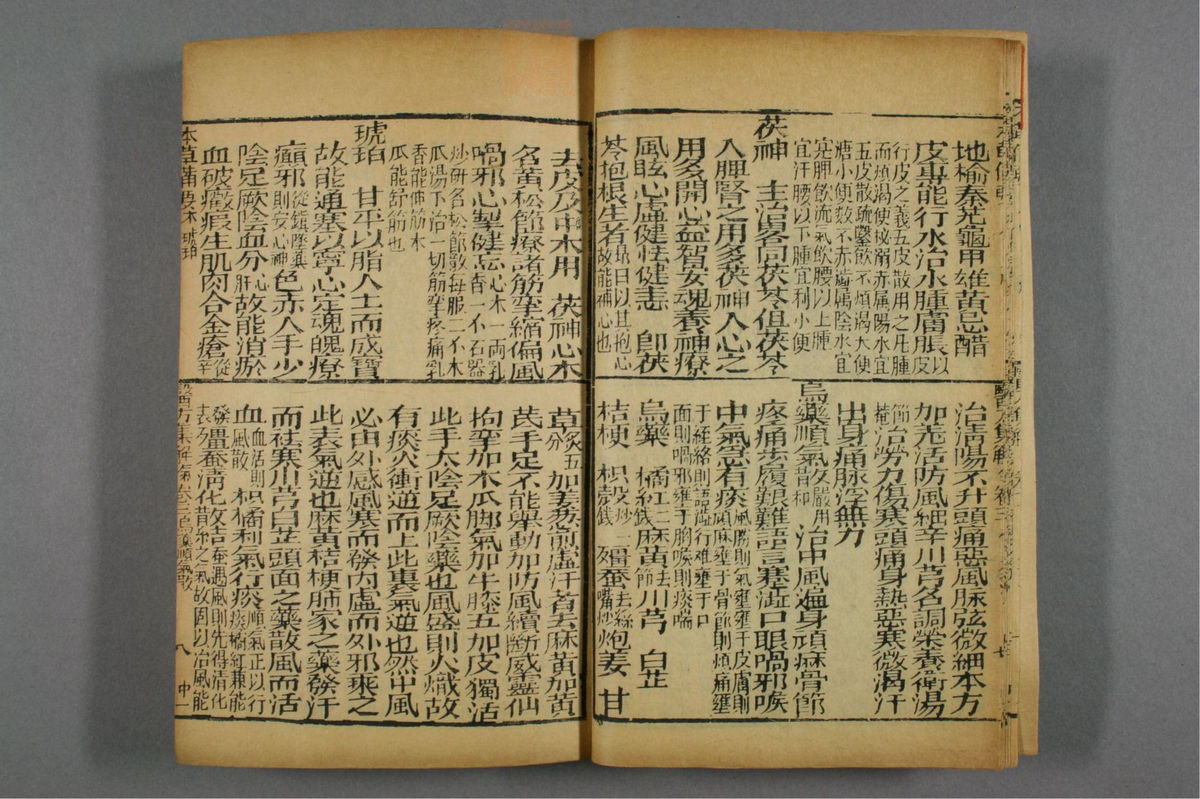 地榆秦艽龜甲雄黃忌醋
皮專能行水治水腫膚脹以皮
行皮之義五皮散用之凡腫
而煩渴便秘溺赤属陽水宜
五皮散疏鑿飲不煩渴大便
溏小便数不赤澁属陰水宜
寔脾飲流氣飲腰以上腫
宜汗腰以下腫宜利小便
茯神 主治畧同茯苓但茯苓
入脾腎之用多茯神入心之
用多開心益智安魂養神療
風眩心虛健忘健志 即茯
苓抱根生者以其抱心故能補心也
去皮及中木用 茯神心木
名黃松節療諸筋攣縮偏風
喎邪心掣健忘心木一兩乳香一不石器
炒研名松節散每服二不木
瓜湯下治一切筋攣疼痛乳
香能伸筋木
瓜能舒筋也
琥珀 甘平以脂入土而成寶
故能通塞以寧心定魂魄療
癲邪從鎮墜藥則安心神色赤入手少
陰足厥陰血分心肝故能消瘀
血破癥瘕生肌肉合金瘡從辛
本草備要 木 琥珀
治清陽不升頭痛惡風脉弦微細本方
加羌活防風細辛川芎名調榮養衛湯
節菴治労力傷寒頭痛身熱惡寒微渴汗
出身痛脉浮無力
烏藥順氣散嚴用和 治中風遍身頑麻骨節
疼痛步履艱難語言蹇澁口眼喎邪喉
中氣急有痰風勝則氣壅壅于皮膚則頑麻壅于骨節則煩痛壅
于経絡則語澁行难壅于口
面則喎邪壅于胸喉則痰喘
烏藥 橘紅二錢 麻黃去節 川芎 白芷
桔梗 枳殼炒一錢 殭蚕去絲嘴炒 炮姜 甘
草炙五分 加姜葱煎虛汗者去麻黃加黃
芪手足不能舉動加防風續斷威靈仙
拘攣加木瓜脚氣加牛膝五加皮獨活
此手太陰足厥陰藥也風盛則火熾故
有痰火衝逆而上此裏氣逆也然中風
必由外感風寒而發內虛而外邪乘之
此表氣逆也麻黃桔梗肺家之藥發汗
而祛寒川芎白芷頭面之藥散風而活
血血活則風散枳橘利氣行痰順氣正以行痰橘紅兼能
發表殭蚕清化
醫方集解 烏藥順氣散
八